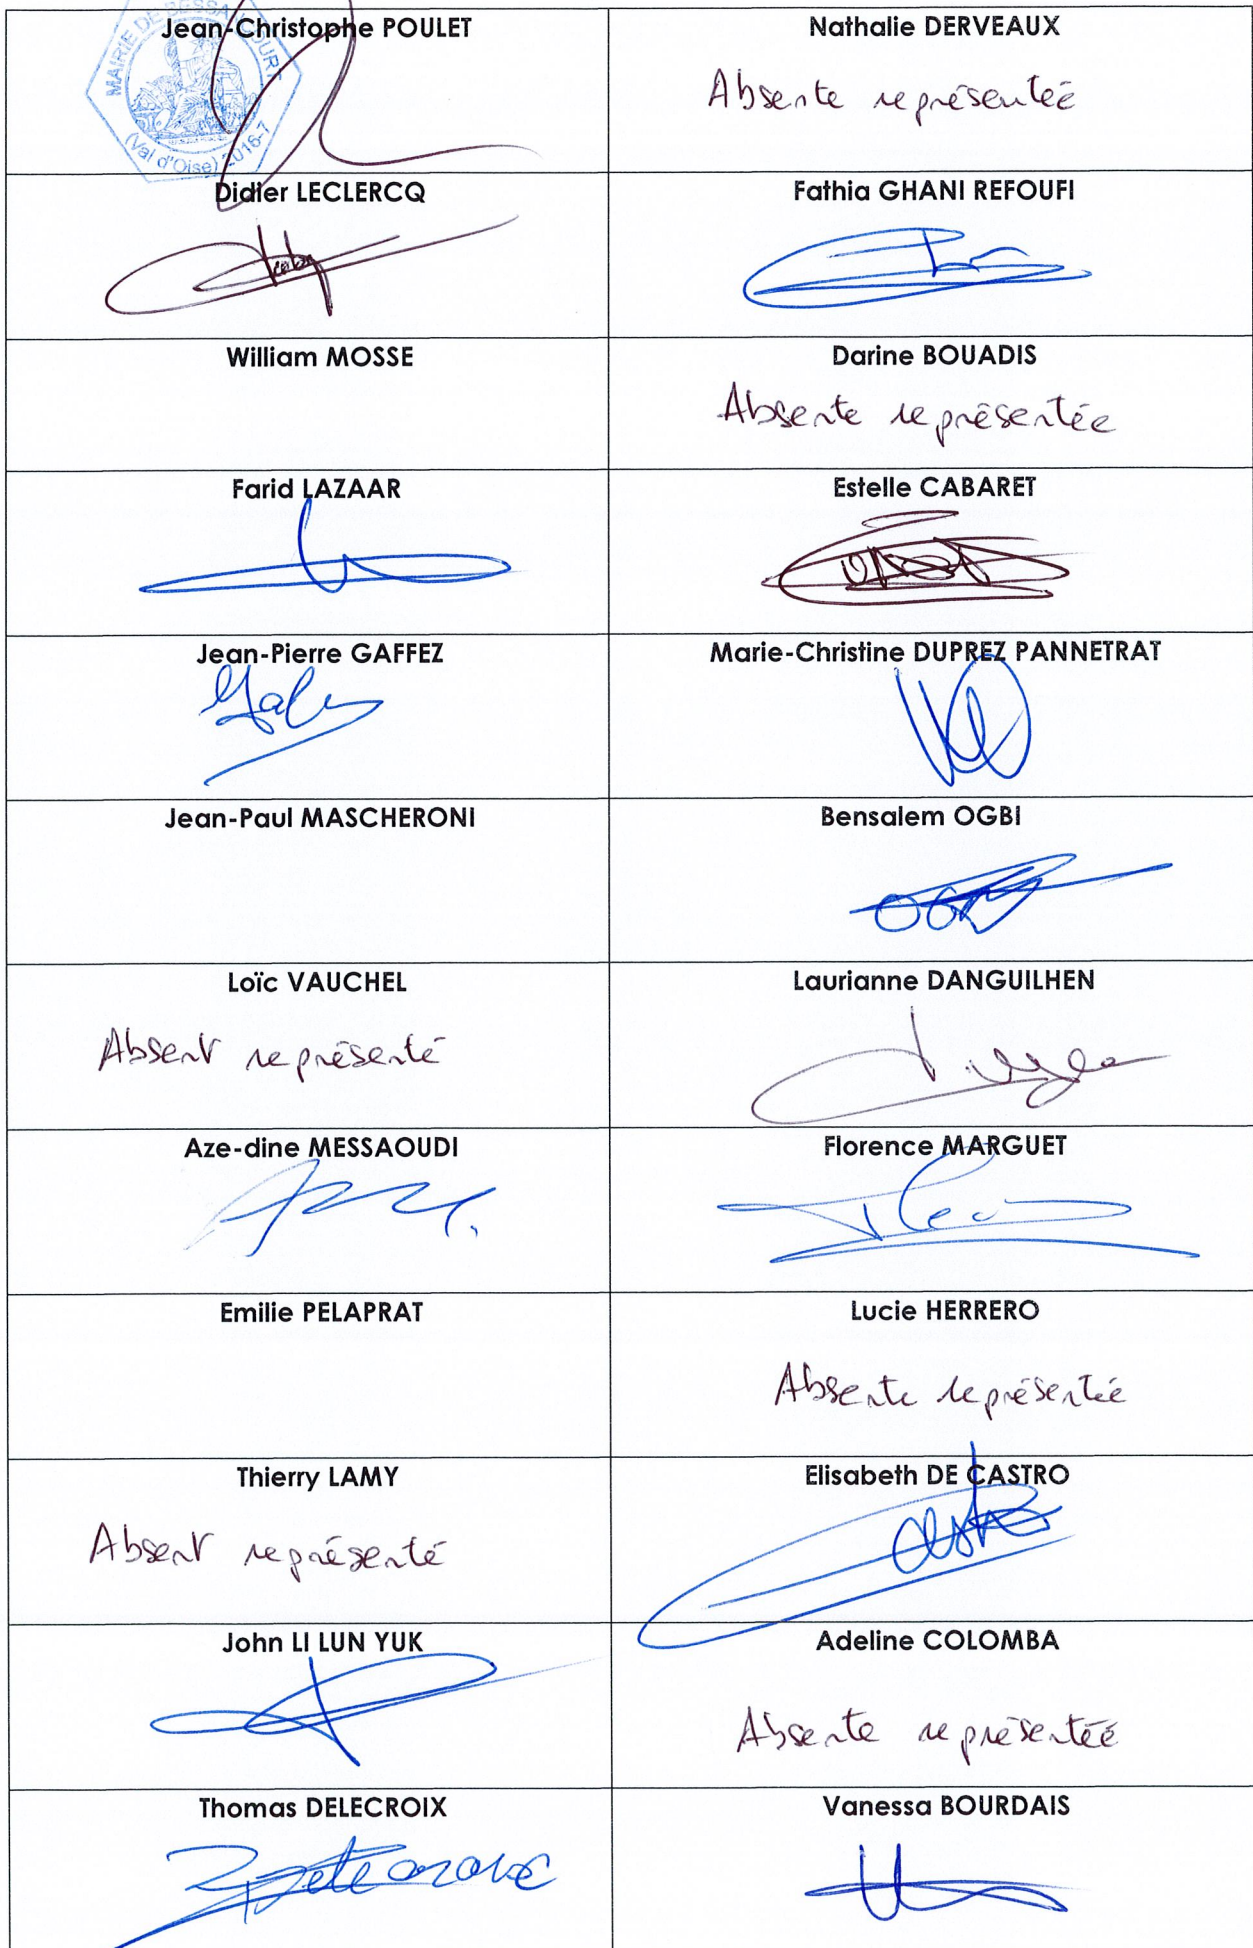 MAIRIE DE BESSANCOURT
(Val d'Oise) 2016-7
Jean-Christophe POULET
Nathalie DERVEAUX
Absente représentée
Didier LECLERCQ
Fathia GHANI REFOUFI
William MOSSE
Darine BOUADIS
Absente représentée
Farid LAZAAR
Estelle CABARET
Jean-Pierre GAFFEZ
Marie-Christine DUPREZ PANNETRAT
Jean-Paul MASCHERONI
Bensalem OGBI
Loïc VAUCHEL
Absent représenté
Laurianne DANGUILHEN
Aze-dine MESSAOUDI
Florence MARGUET
Emilie PELAPRAT
Lucie HERRERO
Absente représentée
Thierry LAMY
Absent représenté
Elisabeth DE CASTRO
John LI LUN YUK
Adeline COLOMBA
Absente représentée
Thomas DELECROIX
Vanessa BOURDAIS